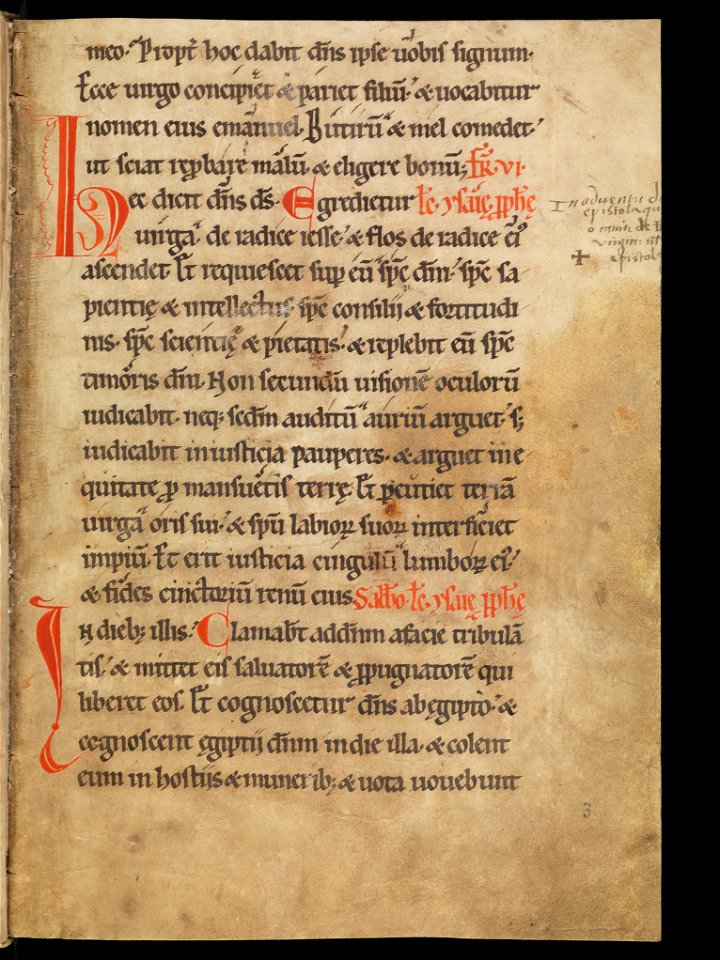 meo. Propt̄ hoc dabit dn̄s ipse uobis signum.
Ecce uirgo concipiet & pariet filiū. & uocabitur
nomen eius emanuel. Butirū & mel comedet.
ut sciat rep̄bare malū. & eligere bonū; FR̄. VI.
Hec dicit dn̄s ds̄. Egredietur Lc̄. ysaię pp̄hę
uirga de radice iesse. & flos de radice ei'
ascendet. Et requiescet sup̄ eū sp̄c dn̄i. sp̄c sa
pientię & intellectus. sp̄c consilij & fortitudi
nis. sp̄c scientię & pietatis. & replebit eū sp̄c
timoris dn̄i. Non secundū uisionē oculorū
iudicabit. neq; scd̄m auditū auriū arguet. s;
iudicabit iniusticia pauperes. & arguet in e
quitate ꝓ mansuetis terrę. Et ꝑcutiet terrā
uirga oris sui. & sp̄u labioꝝ suoꝝ interficiet
impiū. Et erit iusticia cingulū lumboꝝ ei'.
& fides cinctoriū renū eius. Sabb̄o. Lc̄. ysaię pp̄hę
IN dieb; illis. Clamab̄t addn̄m afacie tribulā
tis. & mittet eis saluatorē & ꝓpugnatorē qui
liberet eos. Et cognoscetur dn̄s ab ęgipto. &
cognoscent ęgiptij dn̄m in die illa. & colent
eum in hostijs & munerib; & uota uouebunt
In aduentu d
epistola qu
virgin
epistol
3